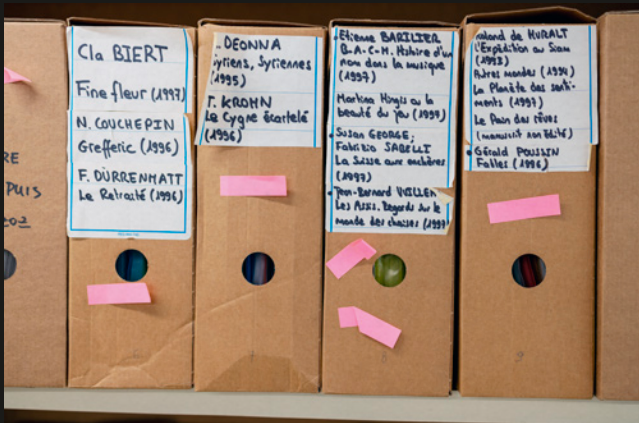 RE
PUIS
202
Cla BIERT
Fine fleur (1997)
N. COUCHEPIN
Grefferic (1996)
F. DÜRRENMATT
Le Retraité (1996)
. DEONNA
Syriens, Syriennes
(1995)
T. KROHN
Le Cygne écartelé
(1996)
Etienne BARILIER
B.A.C.H. Histoire d'un
nom dans la musique
(1997)
Martina Hingis ou la
beauté du jeu (1997)
• Susan GEORGE;
Fabrizio SABELLI
La Suisse aux enchères
(1997)
• Jean-Bernard VUILLEM
Les Assis. Regards sur le
monde des chaises (1997
Roland de MURALT
L'Expédition au Siam
(1993)
Autres mondes (1994)
La Planète des senti-
ments (1997)
Le Pain des rêves
(manuscrit non édité)
• Gérald POUSSIN
Folles (1996)